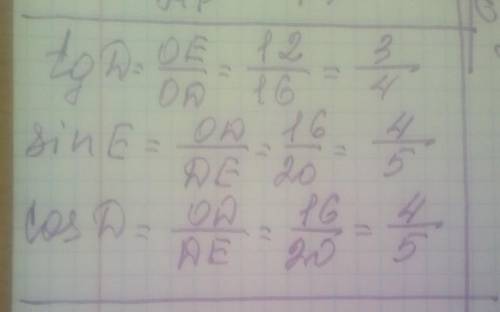 tg D = OE/OD = 12/16 = 3/4
sin E = OD/DE = 16/20 = 4/5
cos D = OD/DE = 16/20 = 4/5